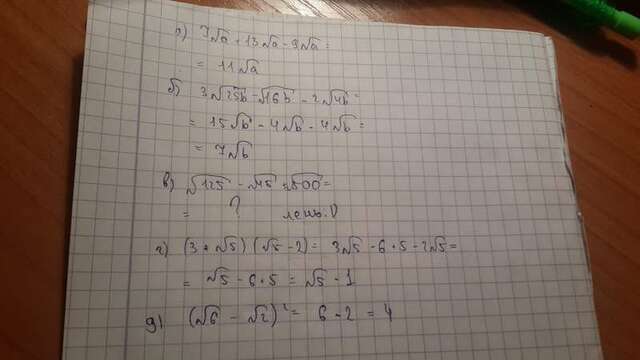 а) 7√a + 13√a - 9√a =
= 11√a
б) 3√25b - √16b - 2√4b =
= 15√b - 4√b - 4√b =
= 7√b
в) √125 - √45 √500 =
= ?
г) (3 + √5) (√5 - 2) = 3√5 - 6 + 5 - 2√5 =
= √5 - 6 + 5 = √5 - 1
д) (√6 - √2)² = 6 - 2 = 4